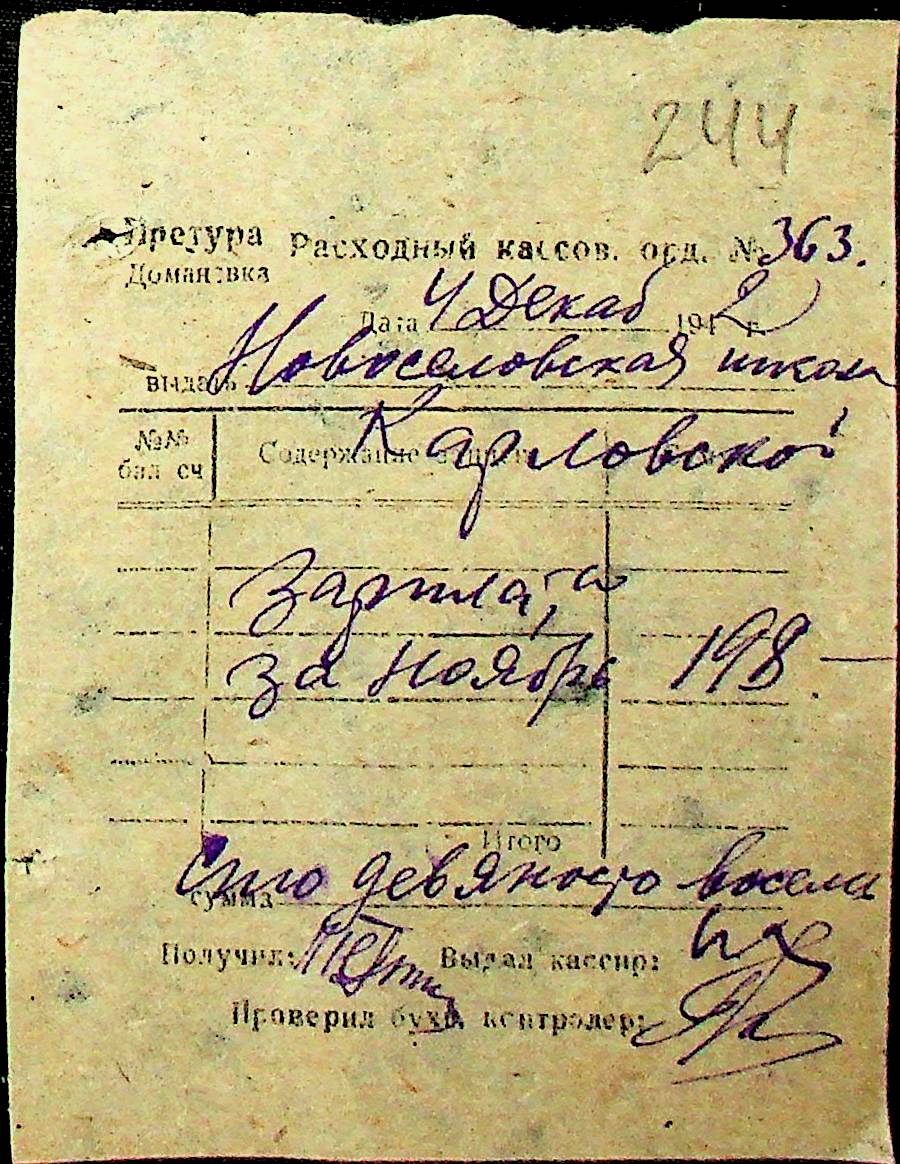 244
Претура Расходный кассов. орд. № 363.
Домановка
Дата 4 Декаб 1942 г.
выдать Новоселовская школа
Карловской
№№ Содержание
бал сч
Зарплата
за ноябрь 198 —
Итого
сумма Сто девяносто восемь
Получил: Выдал кассир:
Проверил бухг. контролер: